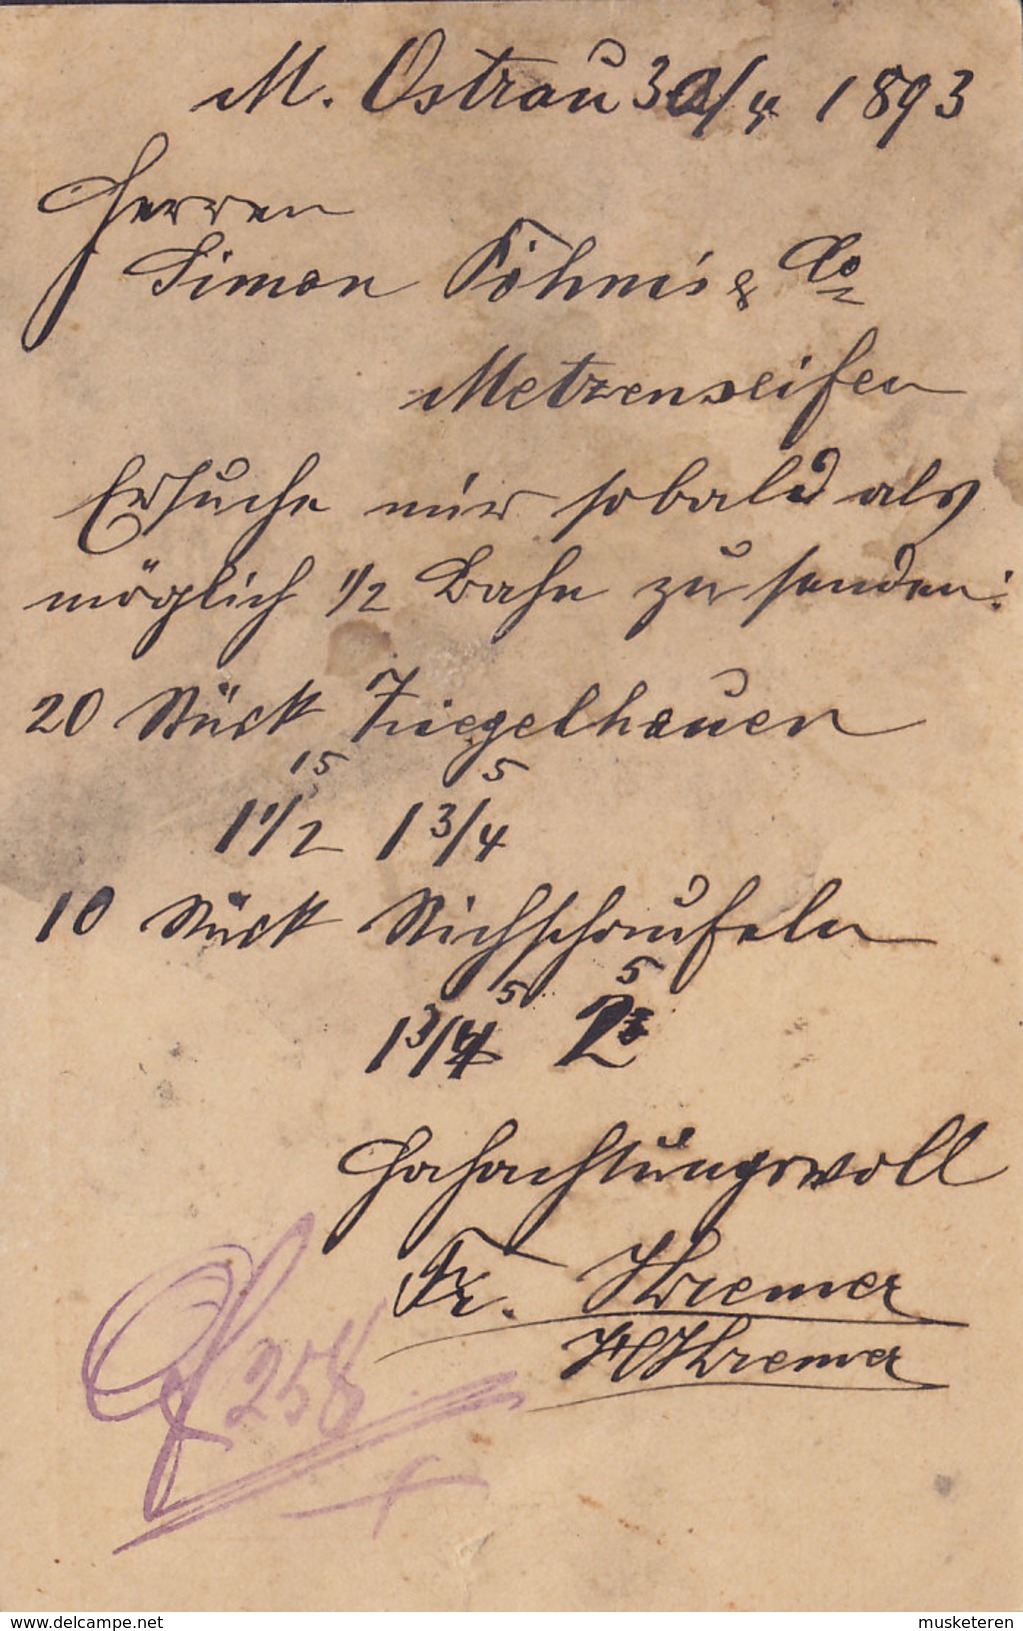 M. Ostrau 30/4 1893
Herren
Simon Köhnis & Co
Metzenseifen
Ersuche mir sobald als
möglich 1/2 Bahn zu senden:
20 Stück Ziegelhauen
15 5
1 1/2 1 3/4
10 Stück Stichschaufeln
5 5
1 3/4 2
Hochachtungsvoll
Fr. Kremer
Kremer
258
delcampe.net
musketeren